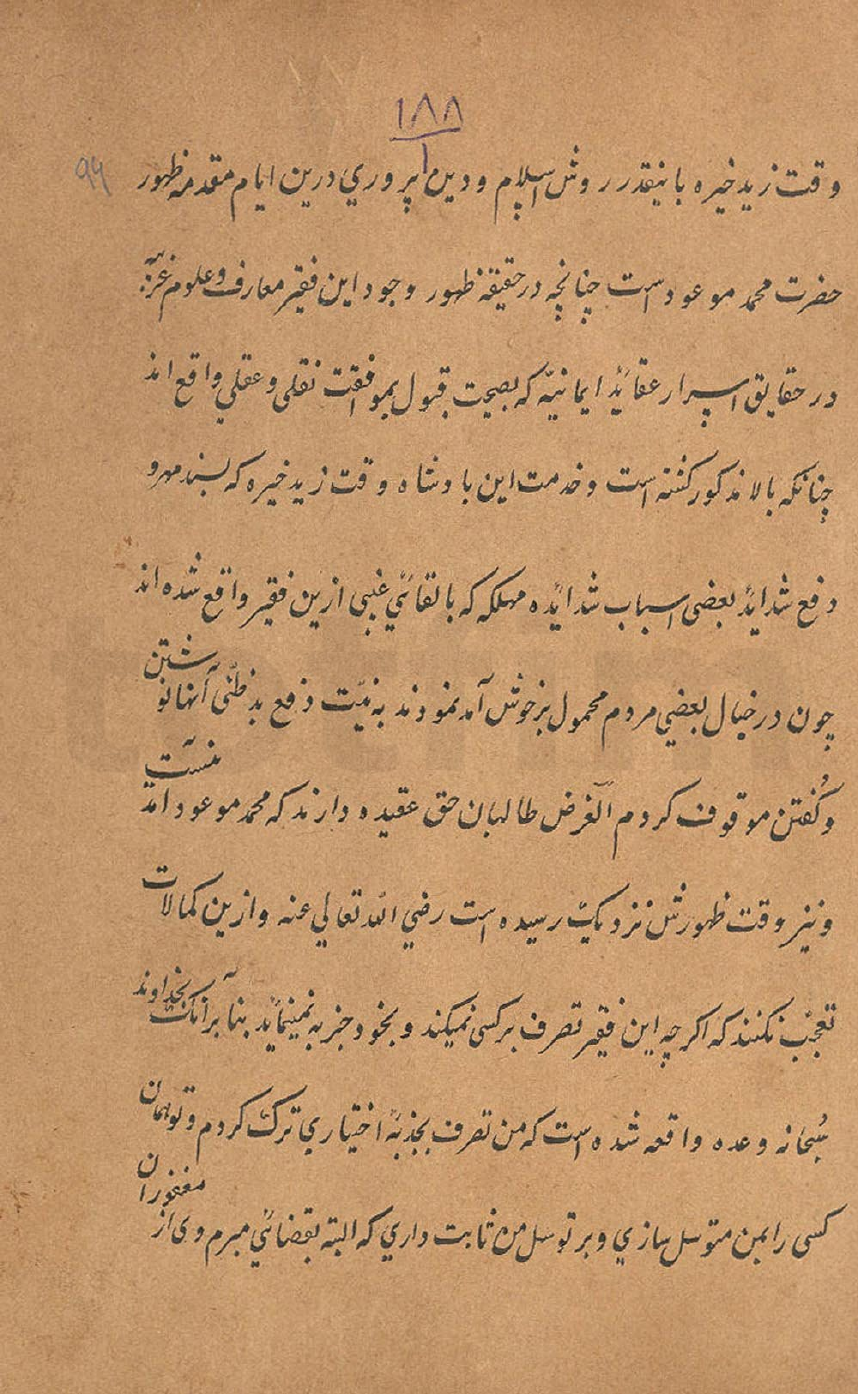 ۱۸۸
۹۴
وقت زید خیره باینقدر روش اسلام و دین پروري درین ایام مقدمه ظهور
حضرت محمد موعود است چنانچه در حقیقه ظهور وجود این فقیر معارف و علوم غریبه
در حقایق اسرار عقائد ایمانیه که بصحت قبول بموافقت نقلی و عقلي واقع اند
چنانکه بالا مذکور گشته است و خدمت این بادشاه وقت زید خیره که بسند مهرو
دفع شداید بعضی اسباب شدائده مهلکه که بالقائي غیبی ازین فقیر واقع شده اند
چون در خیال بعضي مردم محمول بر خوش آمد نمودند به نیت دفع بدظنی آنها نوشتن
و گفتن موقوف کردم الغرض طالبان حق عقیده دارند که محمد موعود آمد نیست
و نیز وقت ظهورش نزدیک رسیده است رضي الله تعالي عنه و ازین کمالات
تعجب نکنند که اگرچه این فقیر تصرف بر کسی نمیکند و بخود جذبه نمینماید بنا بر آنکه بخداوند
سبحانه وعده واقعه شده است که من تصرف بجذبهٔ اختیاري ترک کردم و تو همان
کسی را بمن متوسل سازي و بر توسل من ثابت داري که البته بقضائي مبرم وی از مغفوران